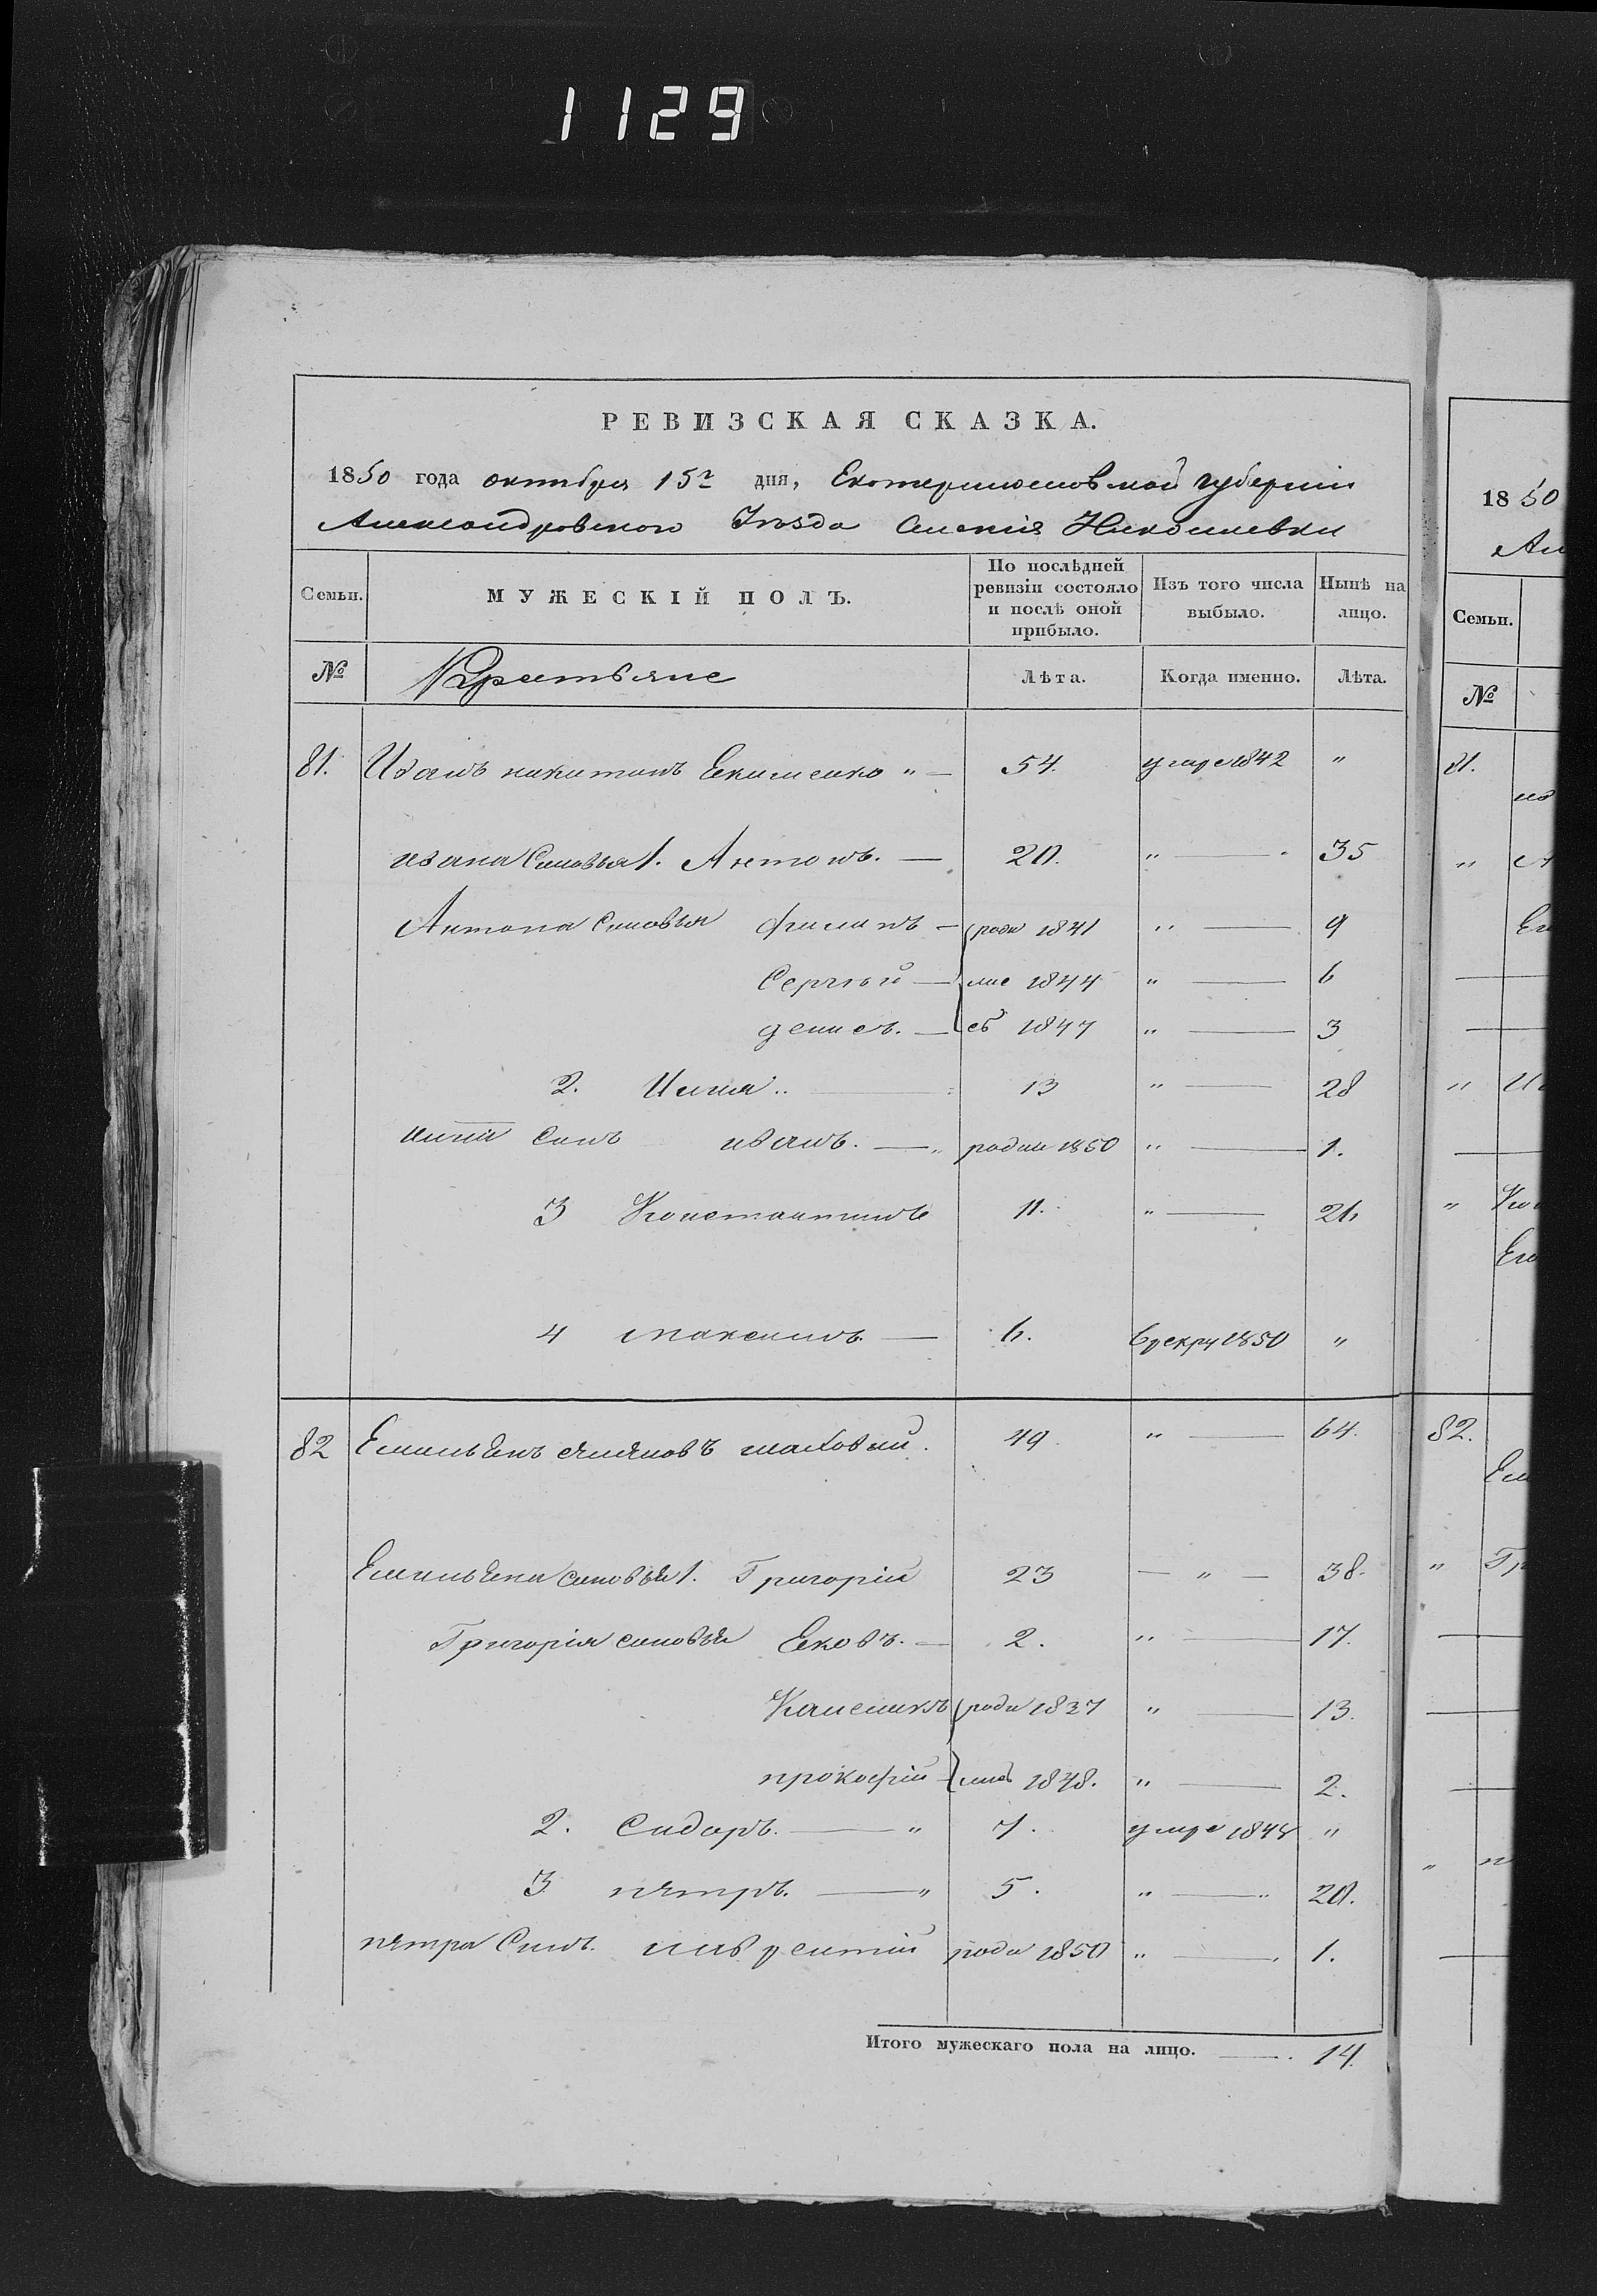 1129
РЕВИЗСКАЯ СКАЗКА.
1850 года октября 15го дня, Екатеринославской губернии
Александровского Уѣзда Селения Николаевки
Семьи. МУЖЕСКІЙ ПОЛЪ. По послѣдней ревизіи состояло и послѣ оной прибыло. Изъ того числа выбыло. Нынѣ на лицо.
№ Крестьяне Лѣта. Когда именно. Лѣта.
81. Иванъ никитинъ Екименко " — 54. умре 1842 "
ивана Синовья 1. Антонъ. — 20. " — 35
Антона Синовья филипъ — роди 1841 " — 9
Сергѣй — лис 1844 " — 6
денисъ. — сѣ 1847 " — 3
2. Илия .. 13 " — 28
илии Синъ иванъ. — родил 1850 " — 1.
3 Константинъ 11. " — 26
4 максимъ — 6. врекру 1850 "
82 Емильянъ шаповал. 49. " — 64.
Емильяна синовья 1. Григорій 23 — " — 38.
Григорія синовья Яковъ. — 2. " — 17.
роди 1837 " — 13.
прокофій 1848. " — 2.
2. Сидоръ. — " 7. умре 1848 "
3 пятръ. — " 5. " — 20.
пятра Синъ. лаврентій роди 1850 " — 1.
Итого мужескаго пола на лицо. — 14.
1850
Семьи.
№
81.
82.